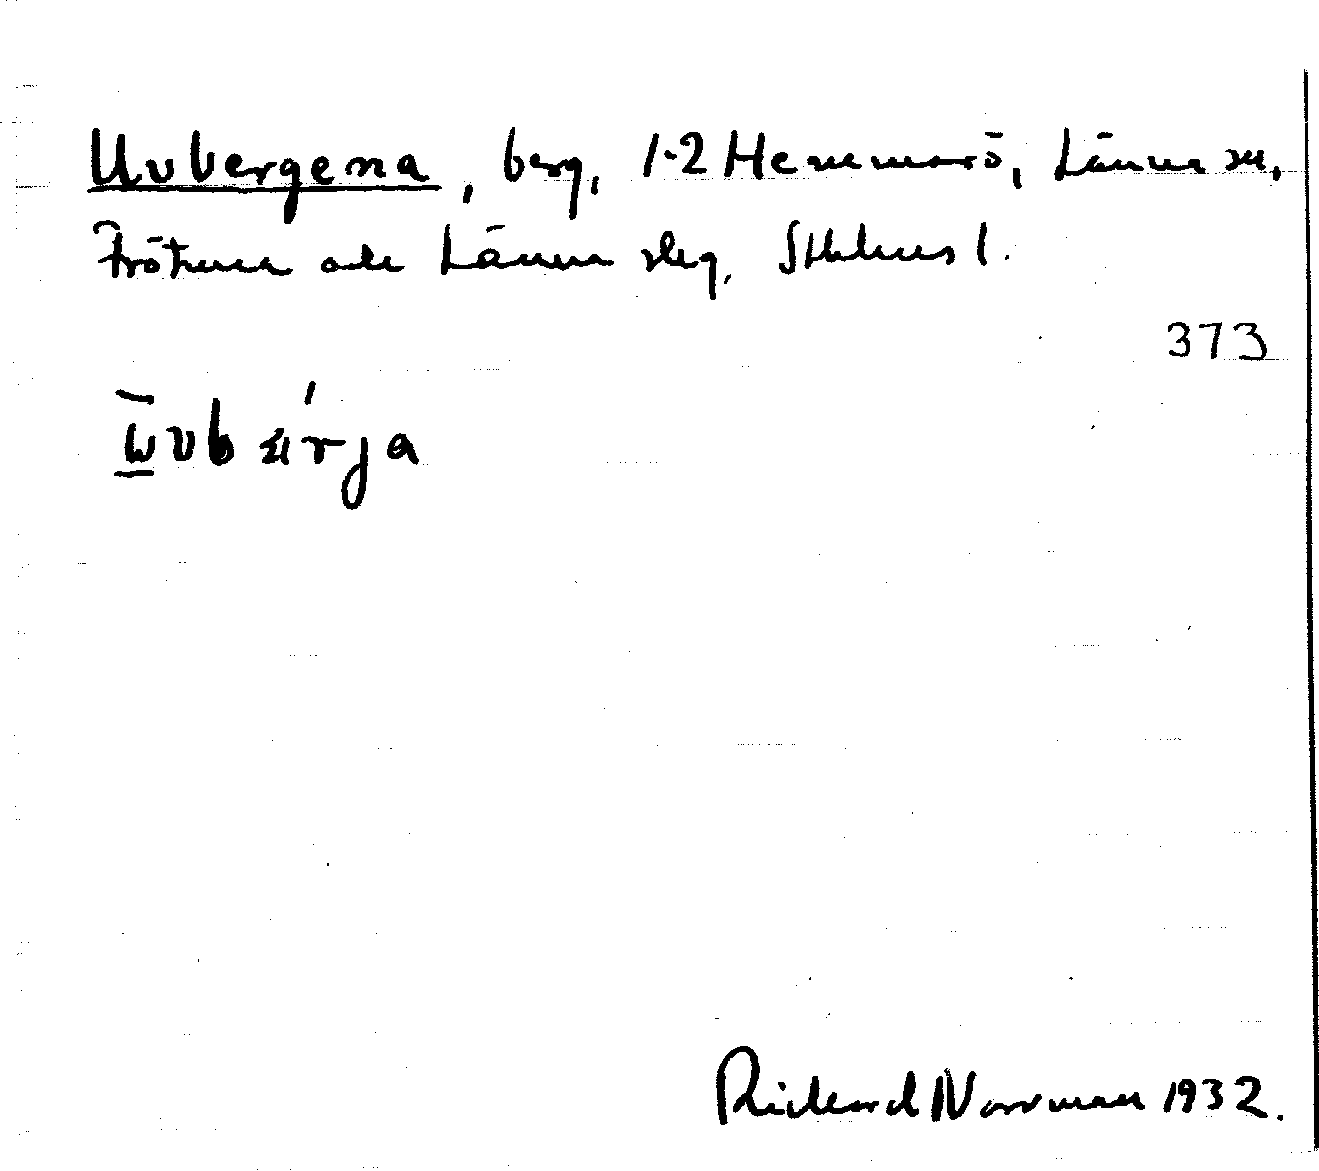 Uvbergena, berg, 1-2 Hemmarö, Länna sn,
Frötuna och Länna sklg, Sthlms l.
373
Rickard Norrman 1932.